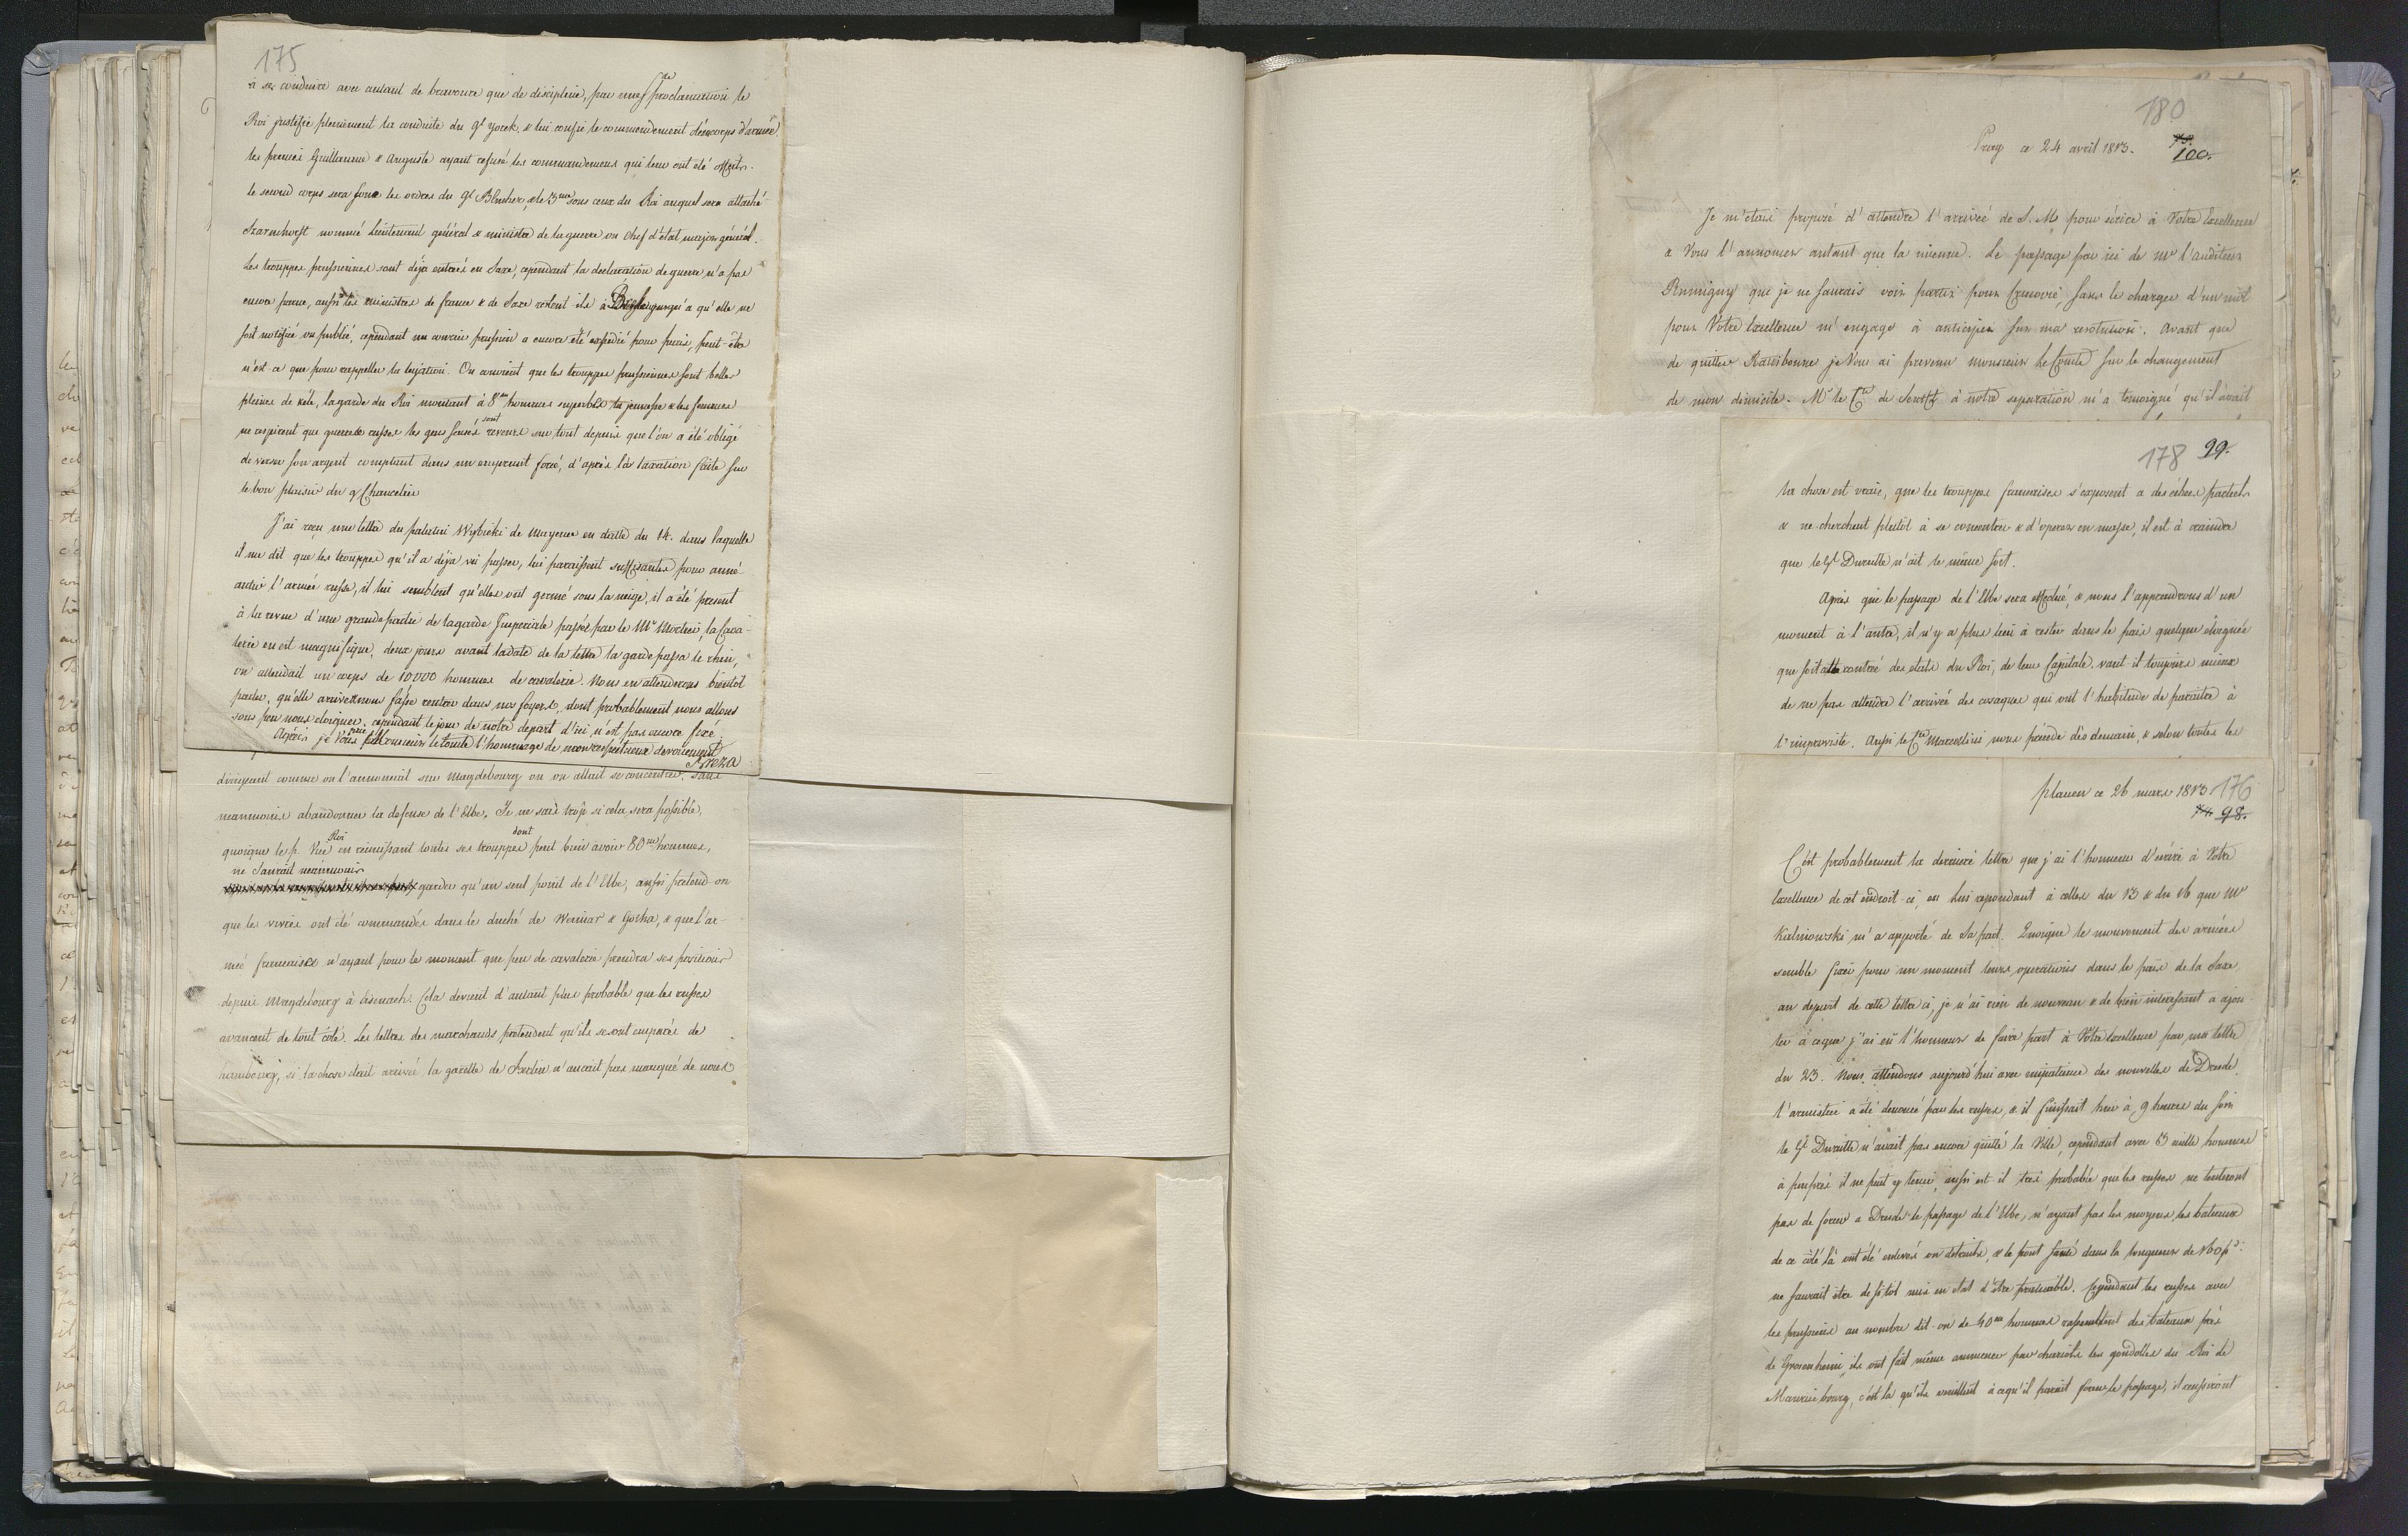 175
à se conduire avec autant de bravoure que de discipline, par une proclamation le
Roi justifie pleinement la conduite du gl yorck, & lui confie le commendement d'un corps d'armée
les princes Guillaume & Auguste ayant refusé les commandemens qui leur ont été offerts.
le second corps sera sous les ordres du gl Blucher, & le 3me sous ceux du Roi auquel sera attaché
Szarnhorst nommé Lieutenant général & ministre de la guerre ou chef d'état major général.
Les trouppes prussiennes sont déja entrées en Saxe, cependant la declaration de guerre n'a pas
encore parue, aussi les ministres de france & de Saxe restent ils à jusqu'a qu'elle ne
soit notifiée ou publiée, cependant un courrier prussien a encore été expédié pour paris, peut-être
n'est ce que pour rappeller la legation. On convient que les trouppes prussiennes sont belles
pleines de zéle, la garde du Roi montant à 8m hommes superbes la jeunesse & les femmes
ne respirent que guerre & russes les gens sensés sont revenus sur tout depuis que l'on a été obligé
de verser son argent comptant dans un emprunt forcé, d'après la taxation faite sur
le bon plaisir du g Chancelier
J'ai reçu une lettre du palatin Wybicki de mayence en datte du 14. dans laquelle
il me dit que les trouppes qu'il a déja vu passer, lui paraissent suffisantes pour ané-
antir l'armée russe, il lui semblent qu'elles ont germé sous la neige, il a été present
à la revue d'une grande partie de la garde Imperiale passée par le Ml Mortier, la Cava-
lerie en est magnifique, deux jours avant la date de la lettre la garde passa le rhin,
on attendait un corps de 10000 hommes de cavalerie. Nous en attenderons bientot
parler, qu'elle arrive & nous fasse rentrer dans nos foyers, dont probablement nous allons
sous peu nous eloigner, cependant le jour de notre depart d'ici n'est pas encore fixé.
Agréez je Vous prie Monsieur le Comte l'hommage de mon respectueux devouement
Breza
dirigeant comme on l'annonçait sur Magdebourg ou on allait se concentrer, sans
neanmoins abandonner la defense de l'Elbe. Je ne sais trop si cela sera possible,
quoique le p. Vice Roi en reunissant toutes ses trouppes dont peut bien avoir 80m hommes,
ne saurait néanmoins garder qu'un seul point de l'Elbe, aussi pretend-on
que les vivres ont été commandés dans le duché de Weimar & Gotha, & que l'ar-
mée française n'ayant pour le moment que peu de cavalerie prendra ses positions
depuis Magdebourg à Eisenach. Cela devient d'autant plus probable que les russes
avancent de tout coté. Les lettres des marchands pretendent qu'ils se sont emparés de
hambourg, si la chose était arrivée la gazette de Berlin n'aurait pas manqué de nous
180
100.
Prag ce 24 avril 1813.
Je m'etais proposé d'attendre l'arrivée de S. M. pour écrire à Votre Excellence
& Vous l'annoncer autant que la mienne. Le passage par ici de mr l'auditeur
Rumigny que je ne saurais voir partir pour Cracovie, sans le charger d'un mot
pour Votre Excellence m'engage à anticiper sur ma resolution. Avant que
de quitter Ratisbonne je Vous ai prevenu monsieur le Comte sur le changement
de mon domicile. Mr le Cte de Senfft à notre separation m'a temoigné qu'il avait
178 99.
la chose est vraie, que les trouppes françaises s'exposent a des échecs partiels
& ne cherchent plutôt à se concentrer & d'operer en masse, il est à craindre
que le Gl Durutte n'ait le même sort.
Après que le passage de l'Elbe sera effectué, & nous l'apprendrons d'un
moment à l'autre, il n'y a plus lieu à rester dans le païs quelque éloignée
que soit cette contrée des etats du Roi, de leur Capitale, vaut-il toujours mieux
de ne pas attendre l'arrivée des cosaques qui ont l'habitude de paraitre à
l'improviste. Aussi le Cte Marcollini nous précede dès demain, & selon toutes les
plauen ce 26 mars 1813 176
98.
C'est probablement la derniere lettre que j'ai l'honneur d'écrire à Votre
Excellence de cet endroit-ci, en lui repondant à celles du 13 & du 16 que Mr
Kalinowski m'a apporté de Sa part. Quoique le mouvement des armées
semble fixer pour un moment leurs operations dans le païs de la Saxe,
au depart de cette lettre ci, je n'ai rien de nouveau & de bien interessant a ajou-
ter à ce que j'ai eü l'honneur de faire part à Votre Excellence par ma lettre
du 23. Nous attendons aujourd'hui avec impatience des nouvelles de Dresde,
l'armistice a été denoncé par les russes, & il finissait hier à 9 heures du soir
le Gl Durutte n'avait pas encore quitté la Ville, cependant avec 3 mille hommes
à peuprès il ne peut y tenir, aussi est-il tres probable que les russes ne tenteront
pas de forcer a Dresde le passage de l'Elbe, n'ayant pas les moyens, les bateaux
de ce coté là ont été enlevés ou detruits, & le pont sauté dans la longueur de 160 pds
ne saurait être de sitot mis en etat d'être praticable. Cependant les russes avec
les prussiens au nombre dit-on de 40m hommes rassemblent des bateaux près
de Grosenhein, ils ont fait même ammener par chariots les gondolles du Roi de
Mauriebourg, c'est là qu'ils veuillent à ce qu'il parait forcer le passage, il reussiront